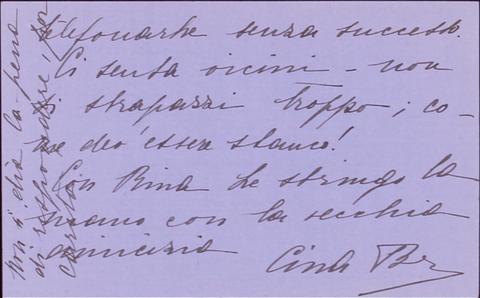 telefonarle senza successo.
Ci senta vicini - non
strapazzi troppo; co-
me dev'esser stanco!
Con Rina Le stringo la
mano con la vecchia
amicizia
Non si dia la pena
di rispondere, per
carità!